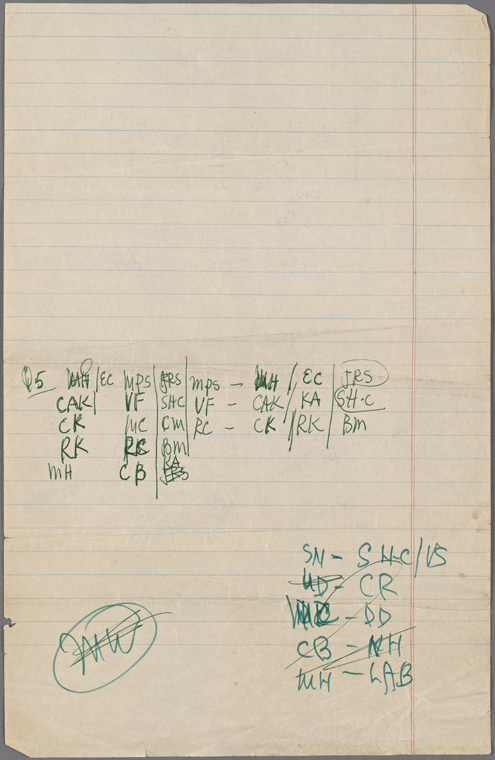 Q5 MH/EC MPS JRS MPS - MH / EC JRS
CAK VF SHC VF - CAK / KA SH.C
CK MC CM RC - CK / RK BM
RK RC BM
MH CB KA
SN - SH-C/VS
- CR
- DD
CB - NH
MH - LAB
MW